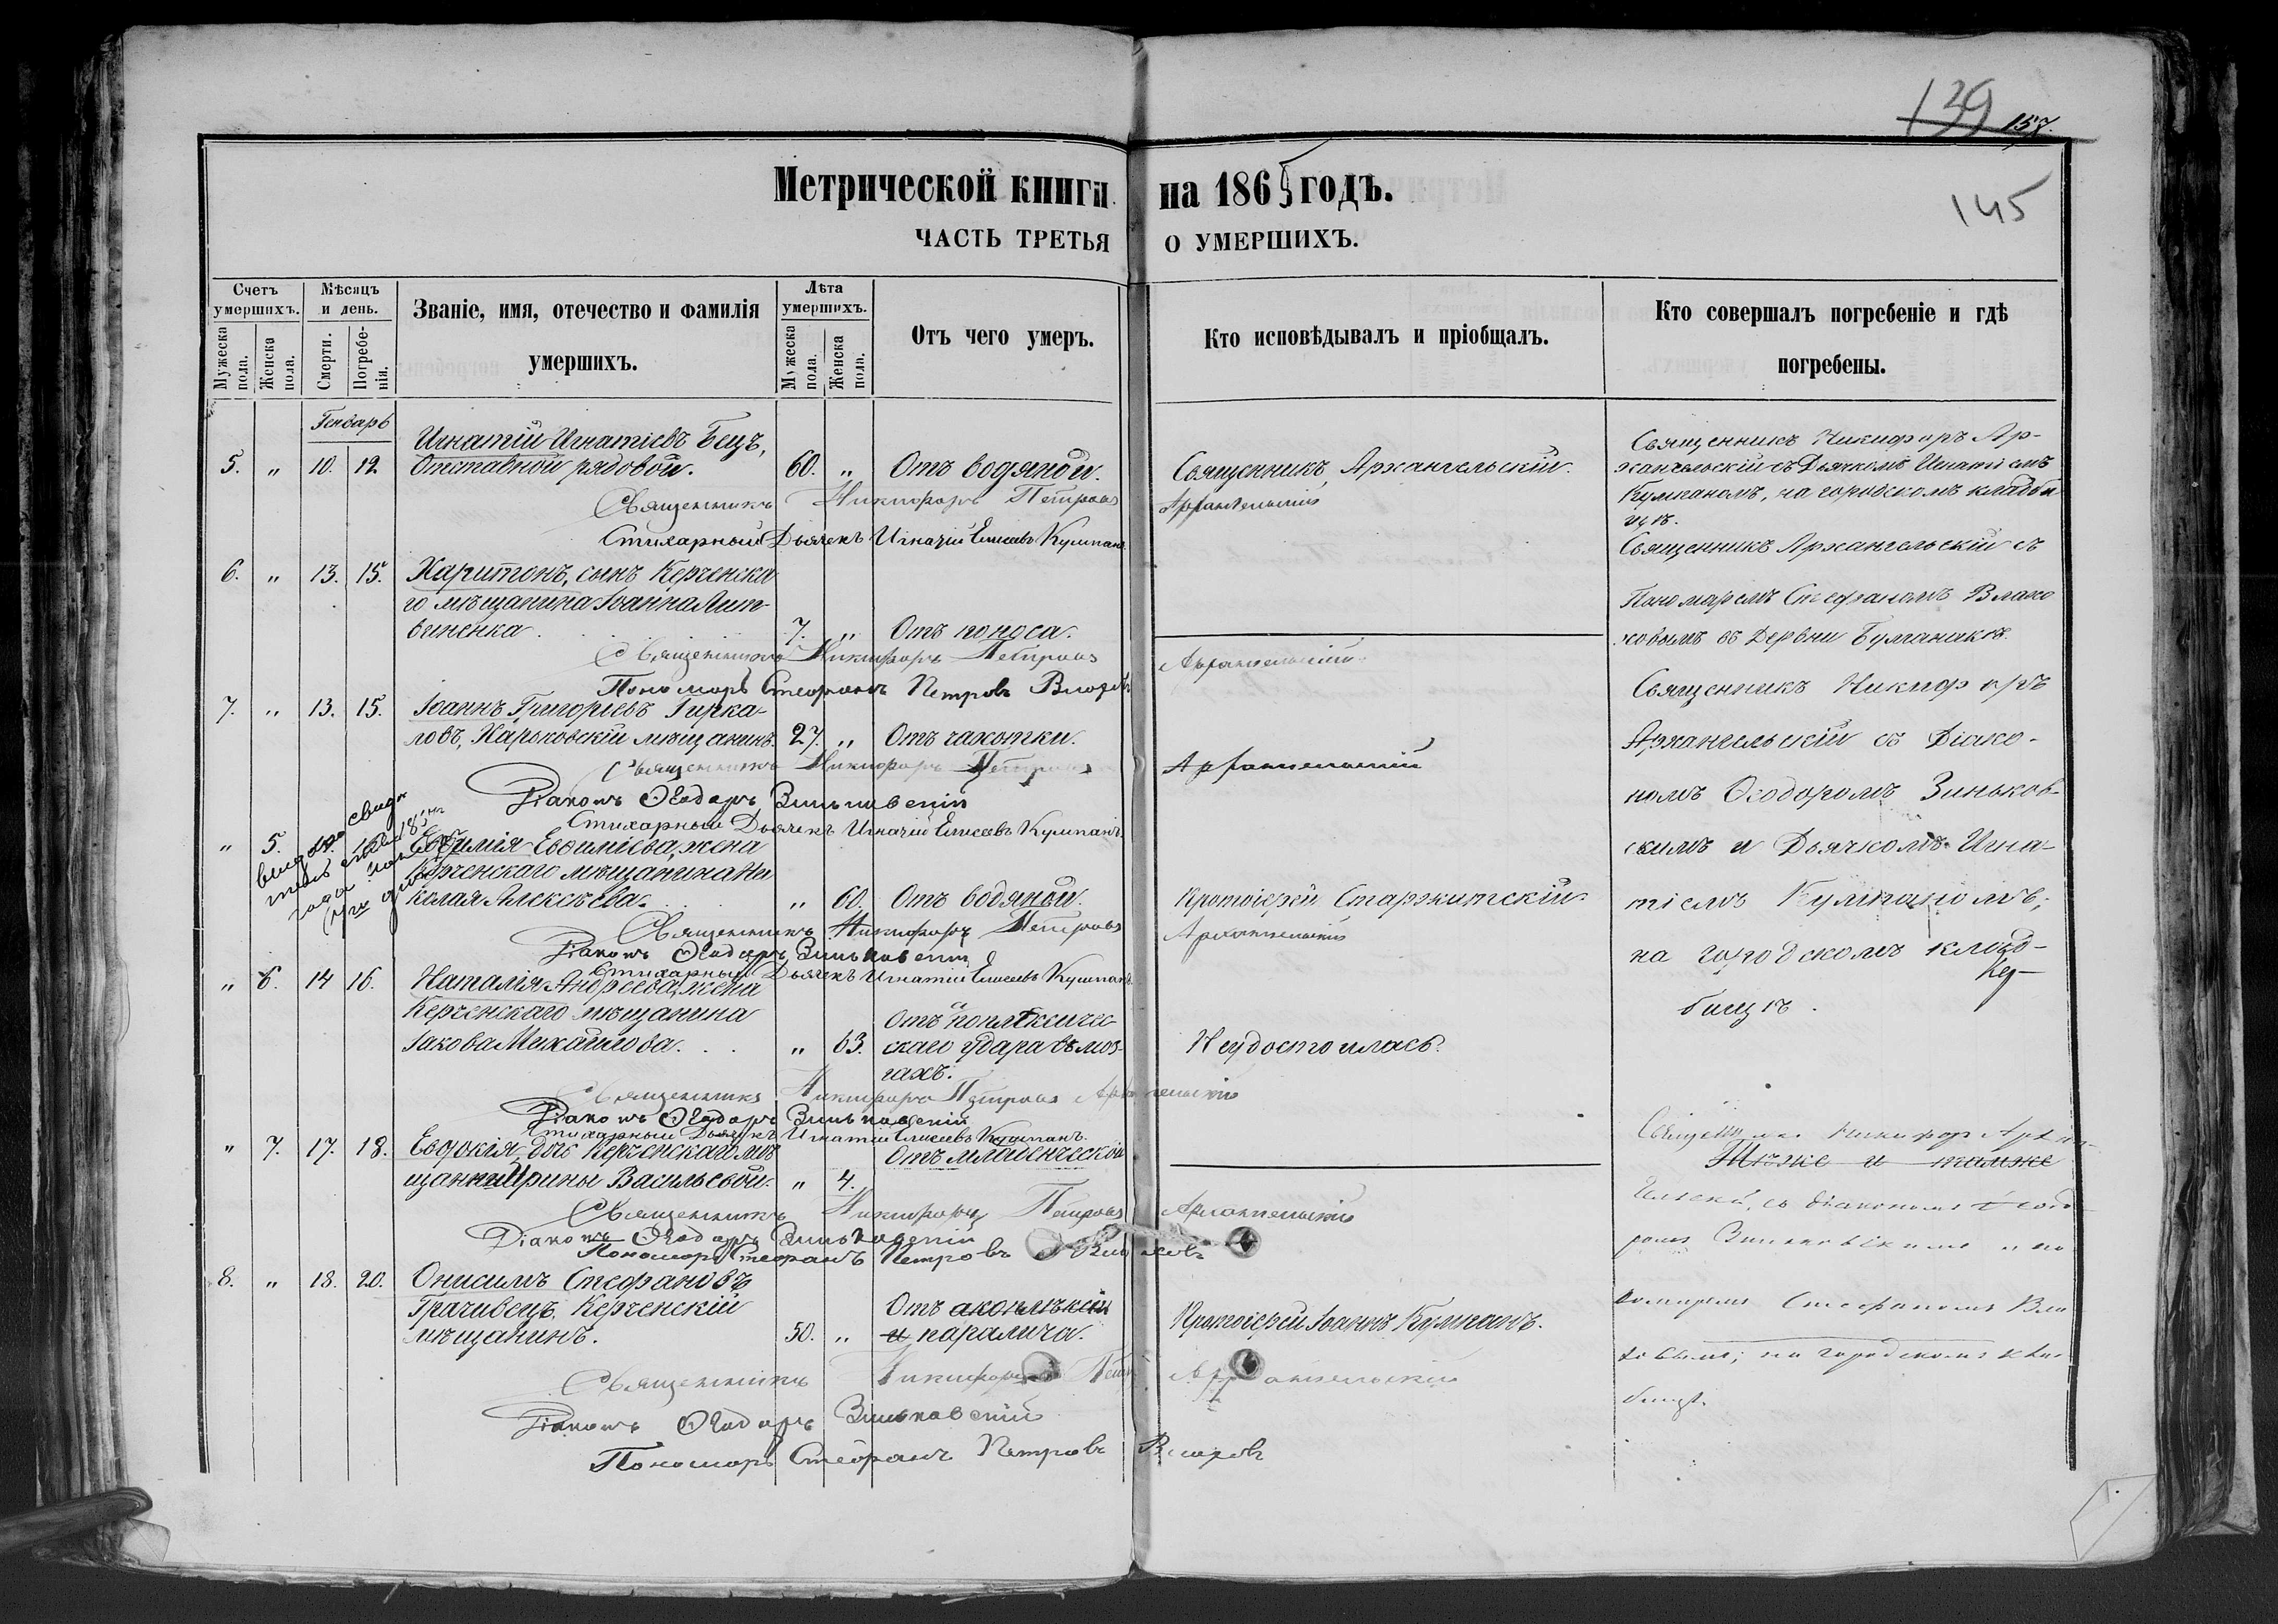 139 157.
145
Метрической книги на 1865 годъ.
ЧАСТЬ ТРЕТЬЯ О УМЕРШИХЪ.
Счетъ умершихъ.
Мужеска пола.
Женска пола.
Мѣсяцъ и день.
Смерти.
Погребенія.
Званіе, имя, отечество и фамилія умершихъ.
Лѣта умершихъ.
Мужеска пола.
Женска пола.
Отъ чего умеръ.
Кто исповѣдывалъ и пріобщалъ.
Кто совершалъ погребеніе и гдѣ погребены.
Генварь
Игнатій Игнатіевъ Бецъ,
5. " 10. 12. Отставной рядовой. 60. " Отъ водяной. Священникъ Архангельскій.
Священникъ Никифоръ Ар-
хангельскій съ Дьячкомъ Игнатіемъ
Кумпаномъ, на городскомъ кладби
щѣ.
Священникъ Никифоръ Петровъ Архангельскій
Стихарный Дьячекъ Игнатій Елисеевъ Кумпанъ
6. " 13. 15. Харитонъ, сынъ Керченска
го мѣщанина Іоанна Лит-
виненка. 7. " Отъ поноса.
Священникъ Архангельскій съ
Пономаремъ Стефаномъ Влахо
ховымъ въ Деревни Булганакѣ.
Священникъ Никифоръ Петровъ Архангельскій
Пономарь Стефанъ Петровъ Влаховъ
7. " 13. 15. Іоаннъ Григорьевъ Гирка-
ловъ, Харьковскій мѣщанинъ. 27. " Отъ чахотки.
Священникъ Никифоръ Петровъ Архангельскій
Діаконъ Ѳеодоръ Зиньковскій
Стихарный Дьячекъ Игнатій Елисеевъ Кумпанъ
Священникъ Никифоръ
Архангельскій съ Діако-
номъ Ѳеодоромъ Зиньков-
скимъ и Дьячкомъ Игна-
тіемъ Кумпаномъ;
на городскомъ клад-
бищѣ.
" 5. Евѳимія Евѳиміева, жена
Керченскаго мѣщанина Ни
колая Алексѣева. " 60. Отъ водяной. Протоіерей Старжитскій
Священникъ Никифоръ Петровъ Архангельскій
Діаконъ Ѳеодоръ Зиньковскій
Стихарный Дьячекъ Игнатій Елисеевъ Кумпанъ
" 6. 14 16. Наталія Андреева, жена
Керченскаго мѣщанина
Іакова Михайлова. " 63. Отъ апоплексичес-
скаго удара въ моз-
гахъ.
Неудостоилась.
Священникъ Никифоръ Петровъ Архангельскій
Діаконъ Ѳеодоръ Зиньковскій
Стихарный Дьячекъ Игнатій Елисеевъ Кумпанъ.
" 7. 17. 18. Евдокія, дочь Керченской мѣ
щанки Ирины Васильевой. " 4. Отъ младенческой
Священникъ Никифоръ Петровъ Архангельскій
Діаконъ Ѳеодоръ Зиньковскій
Пономарь Стефанъ Петровъ Влаховъ
Священникъ Никифоръ Архан-
Тѣже и тамже
гельскій, съ діакономъ Ѳеодо
ромъ Зиньковскимъ и по
номаремъ Стефаномъ Вла
ховымъ; на городскомъ клад
бищѣ.
8. " 18. 20. Онисимъ Стефановъ
Грачивецъ, Керченскій
мѣщанинъ. 50. " Отъ
и паралича.
Протоіерей Іоаннъ Кумпанъ.
Священникъ Никифоръ Петр Архангельскій
Діаконъ Ѳеодоръ Зиньковскій
Пономарь Стефанъ Петровъ Влаховъ